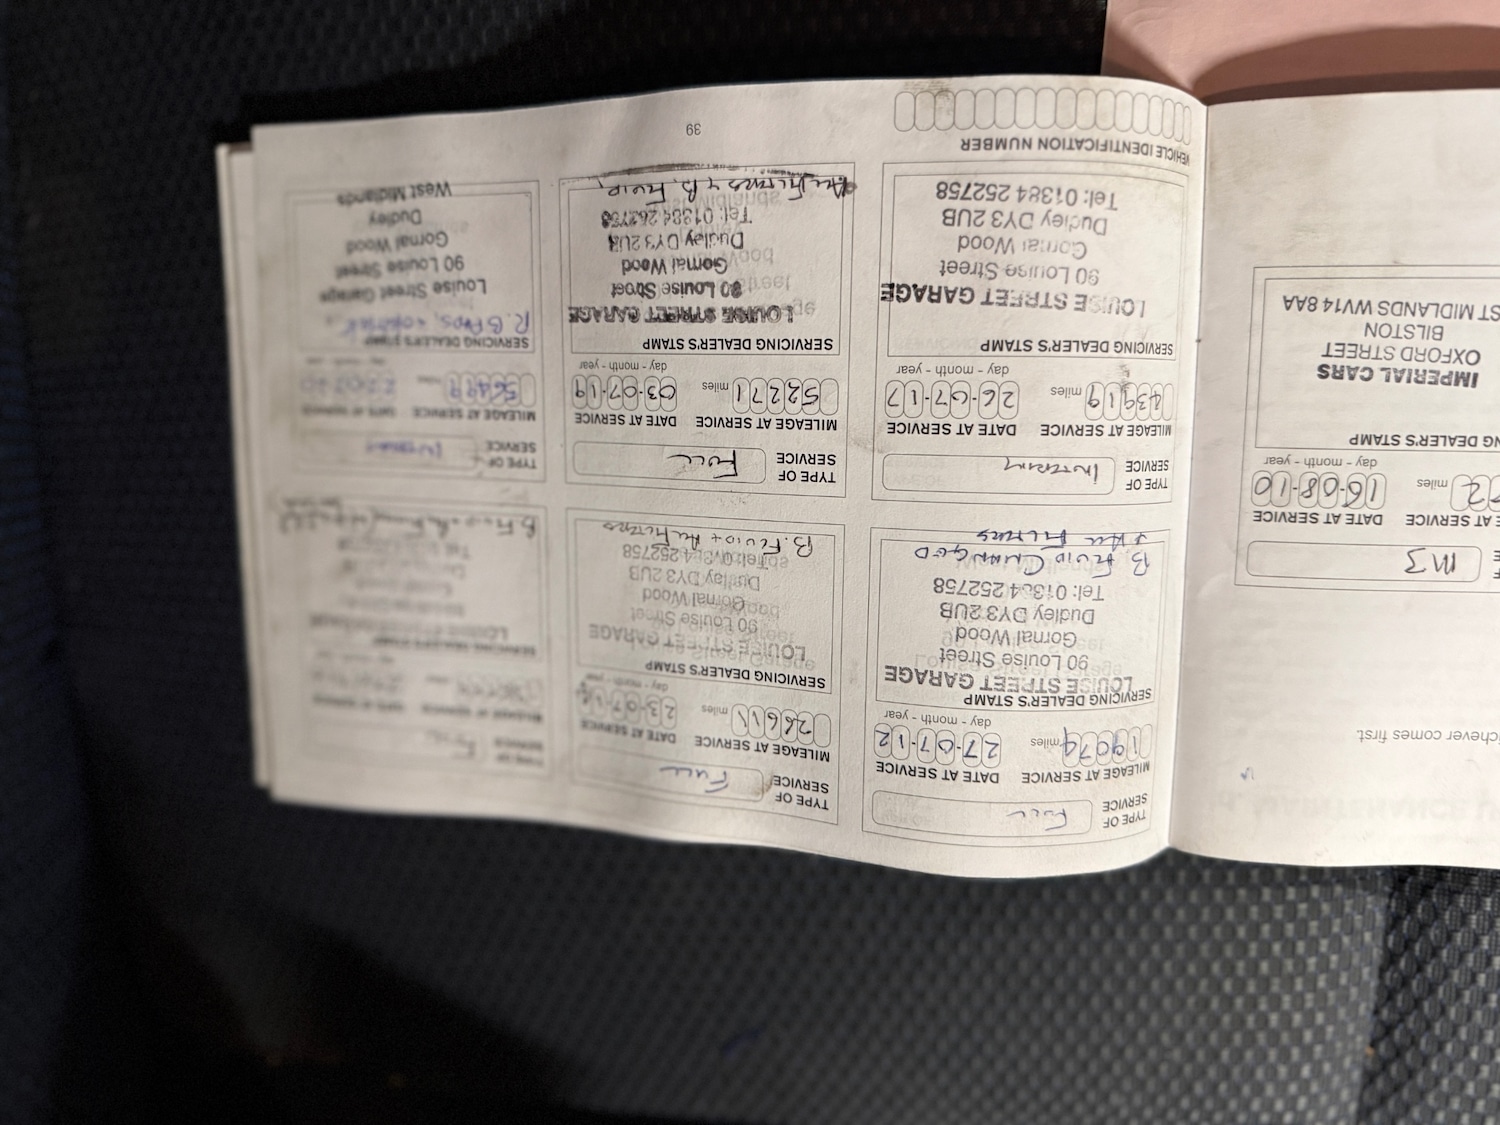 ichever comes first.
M3
E AT SERVICE DATE AT SERVICE
72 miles 16-08-10
day - month - year
NG DEALER'S STAMP
IMPERIAL CARS
OXFORD STREET
BILSTON
ST MIDLANDS WV14 8AA
TYPE OF
SERVICE
Full
MILEAGE AT SERVICE DATE AT SERVICE
19074 miles 27-07-12
day - month - year
SERVICING DEALER'S STAMP
LOUISE STREET GARAGE
90 Louise Street
Gornal Wood
Dudley DY3 2UB
Tel: 01384 252758
B Fluid Changed
& All Filters
TYPE OF
SERVICE
Full
MILEAGE AT SERVICE DATE AT SERVICE
26611 miles
day - month - year
SERVICING DEALER'S STAMP
LOUISE STREET GARAGE
90 Louise Street
Gornal Wood
Dudley DY3 2UB
Tel: 01384 252758
B. Fluid + All Filters
TYPE OF
SERVICE
Full
MILEAGE AT SERVICE DATE AT SERVICE
SERVICING DEALER'S STAMP
TYPE OF
SERVICE
Interim
MILEAGE AT SERVICE DATE AT SERVICE
43919 miles 26-07-17
day - month - year
SERVICING DEALER'S STAMP
LOUISE STREET GARAGE
90 Louise Street
Gornal Wood
Dudley DY3 2UB
Tel: 01384 252758
VEHICLE IDENTIFICATION NUMBER
TYPE OF
SERVICE
Full
MILEAGE AT SERVICE DATE AT SERVICE
52271 miles 03-07-19
day - month - year
SERVICING DEALER'S STAMP
LOUISE STREET GARAGE
90 Louise Street
Gornal Wood
Dudley DY3 2UB
Tel: 01384 252758
All Filters + B. Fluid
39
TYPE OF
SERVICE
Interim
MILEAGE AT SERVICE DATE AT SERVICE
56499 miles
SERVICING DEALER'S STAMP
Louise Street Garage
90 Louise Street
Gornal Wood
Dudley
West Midlands